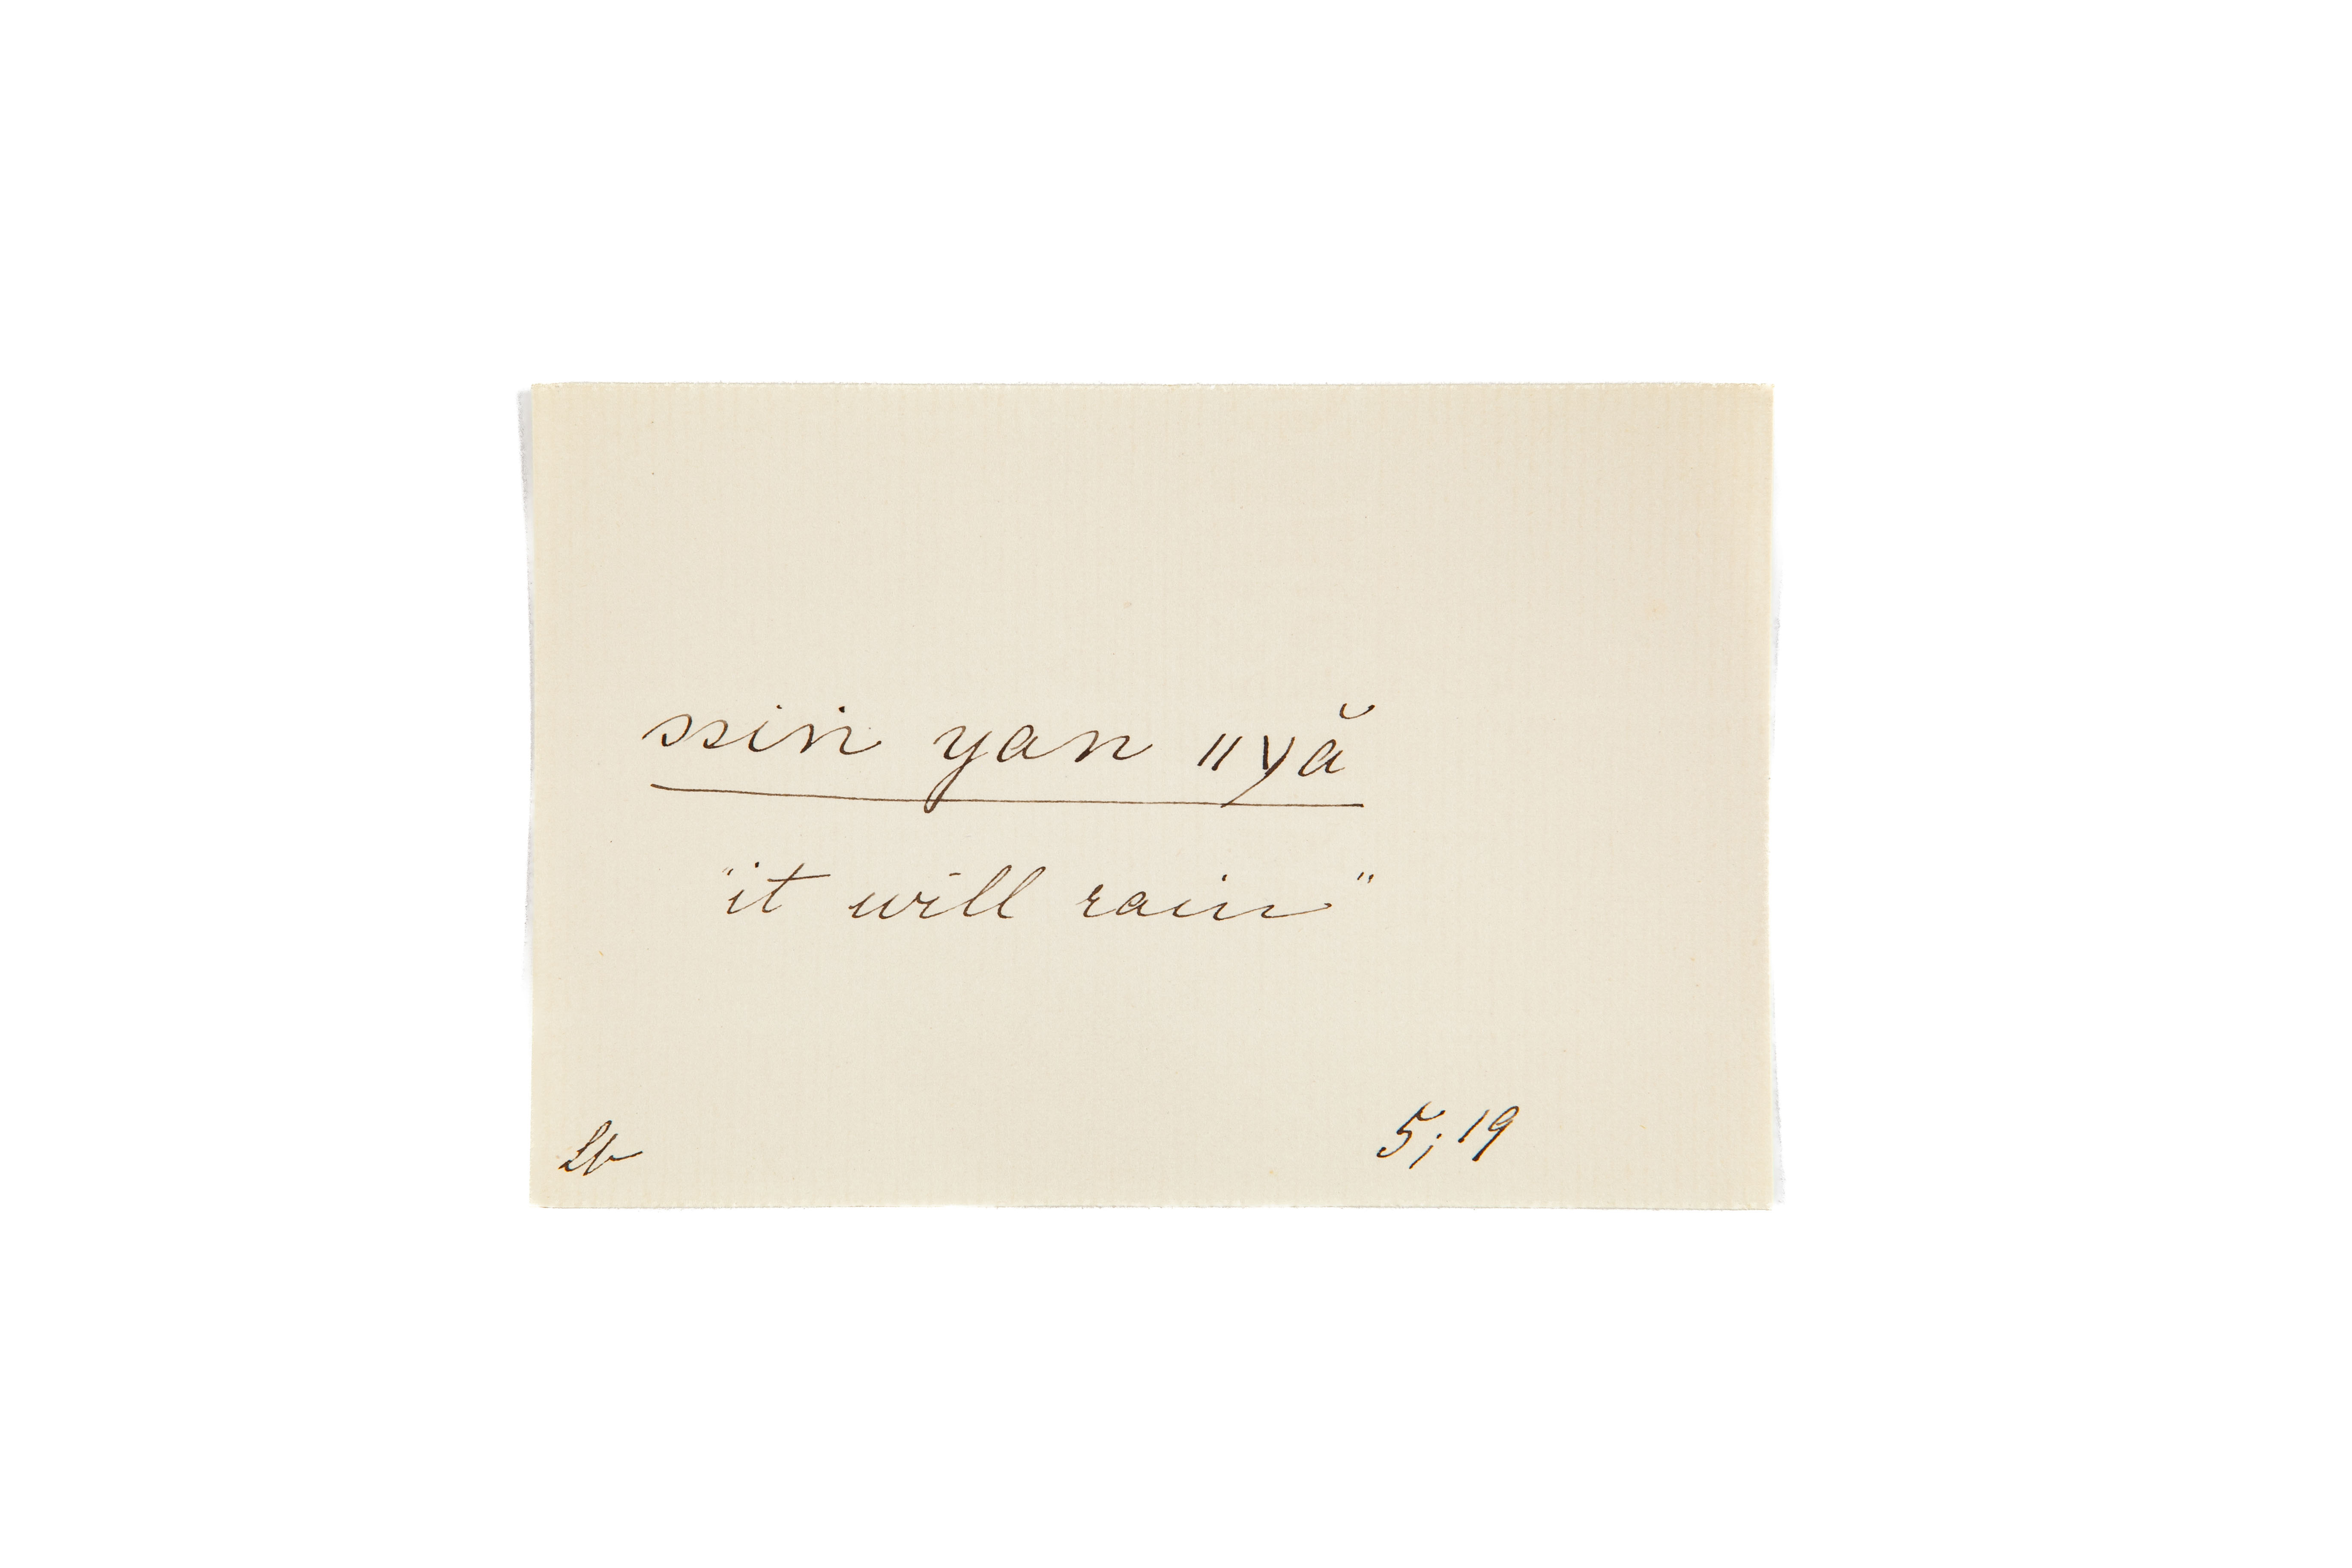 ssin yan ǁyă
"it will rain"
Lb 5; 19